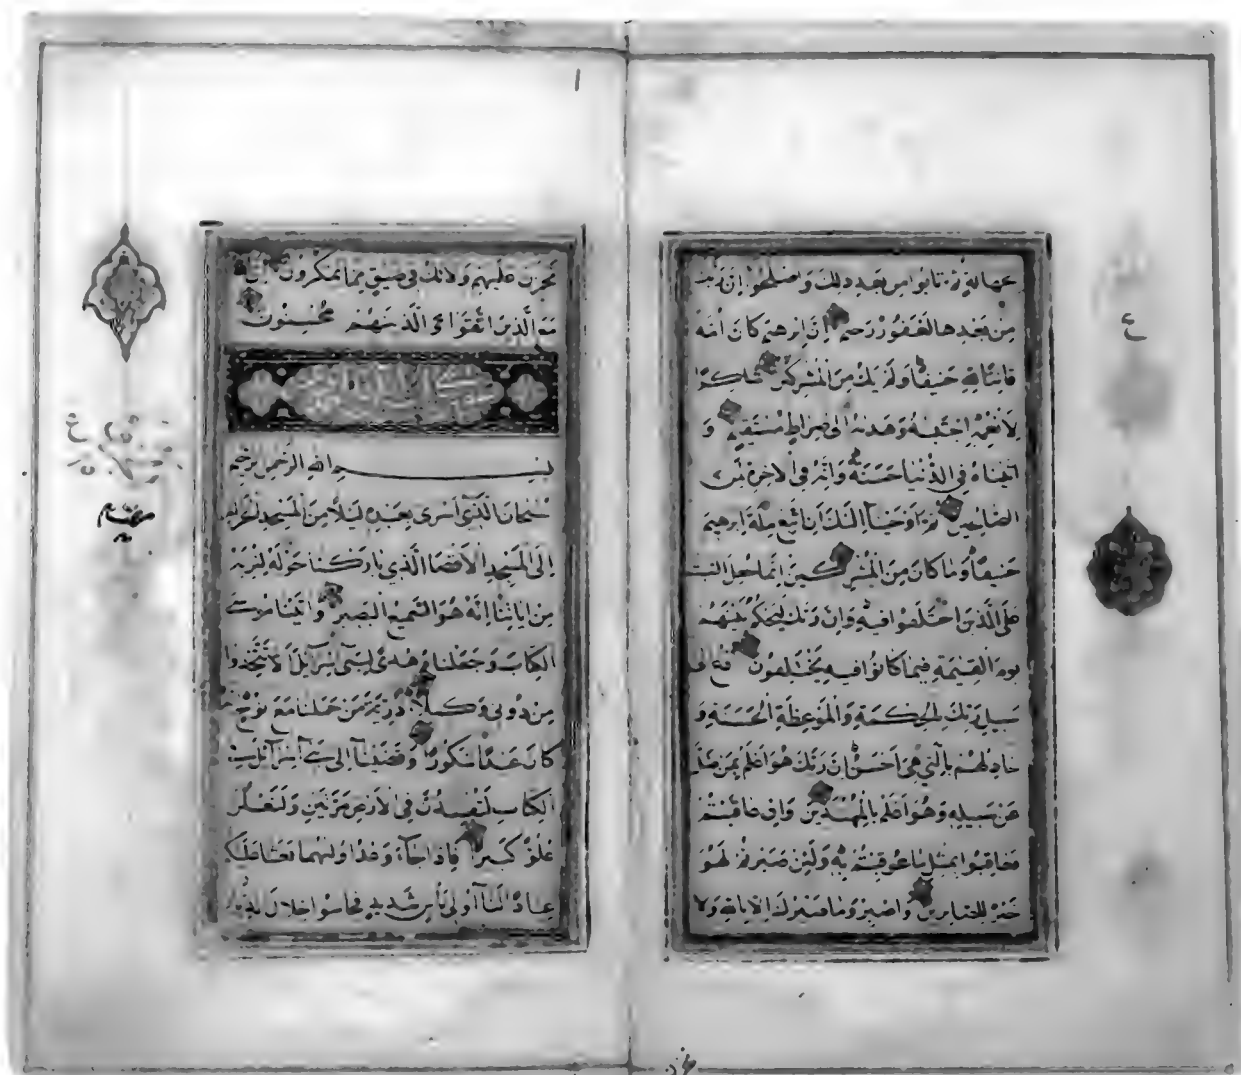 ع
بجهالة ثم تابوا من بعد ذلك واصلحوا ان ربك
من بعدها لغفور رحيم ان ابرهيم كان امة
قانتا لله حنيفا ولم يك من المشركين شاكرا
لانعمه اجتبيه وهديه الى صراط مستقيم و
اتيناه في الدنيا حسنة وانه في الاخرة لمن
الصالحين ثم اوحينا اليك ان اتبع ملة ابرهيم
حنيفا وما كان من المشركين انما جعل السبت
على الذين اختلفوا فيه وان ربك ليحكم بينهم
يوم القيمة فيما كانوا فيه يختلفون ادع الى
سبيل ربك بالحكمة والموعظة الحسنة و
جادلهم بالتي هي احسن ان ربك هو اعلم بمن ضل
عن سبيله وهو اعلم بالمهتدين وان عاقبتم
فعاقبوا بمثل ما عوقبتم به ولئن صبرتم لهو
خير للصابرين واصبر وما صبرك الا بالله ولا
تحزن عليهم ولا تك في ضيق مما يمكرون ان الله
مع الذين اتقوا والذين هم محسنون
بسم الله الرحمن الرحيم
سبحان الذي اسرى بعبده ليلا من المسجد الحرام
الى المسجد الاقصا الذي باركنا حوله لنريه
من اياتنا انه هو السميع البصير واتينا موسى
الكتاب وجعلناه هدى لبني اسرائيل الا تتخذوا
من دوني وكيلا ذرية من حملنا مع نوح انه
كان عبدا شكورا وقضينا الى بني اسرائيل في
الكتاب لتفسدن في الارض مرتين ولتعلن
علوا كبيرا فاذا جاء وعد اوليهما بعثنا عليكم
عبادا لنا اولي باس شديد فجاسوا خلال الديار